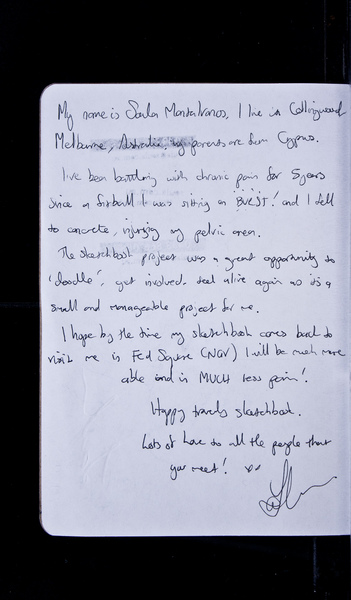 My name is Soula Mantalvanos, I live in Collingwood
Melbourne, Australia, my parents are from Cyprus.
I've been battling with chronic pain for 5 years
since a fitball I was sitting on BURST! and I fell
to concrete, injuring my pelvic area.
The sketchbook project was a great opportunity to
'doodle', get involved, feel alive again as it's a
small and manageable project for me.
I hope by the time my sketchbook comes back to
visit me in Fed Square (NGV) I will be much more
able and in MUCH less pain!
Happy travels sketchbook.
Lots of love to all the people that
you meet!